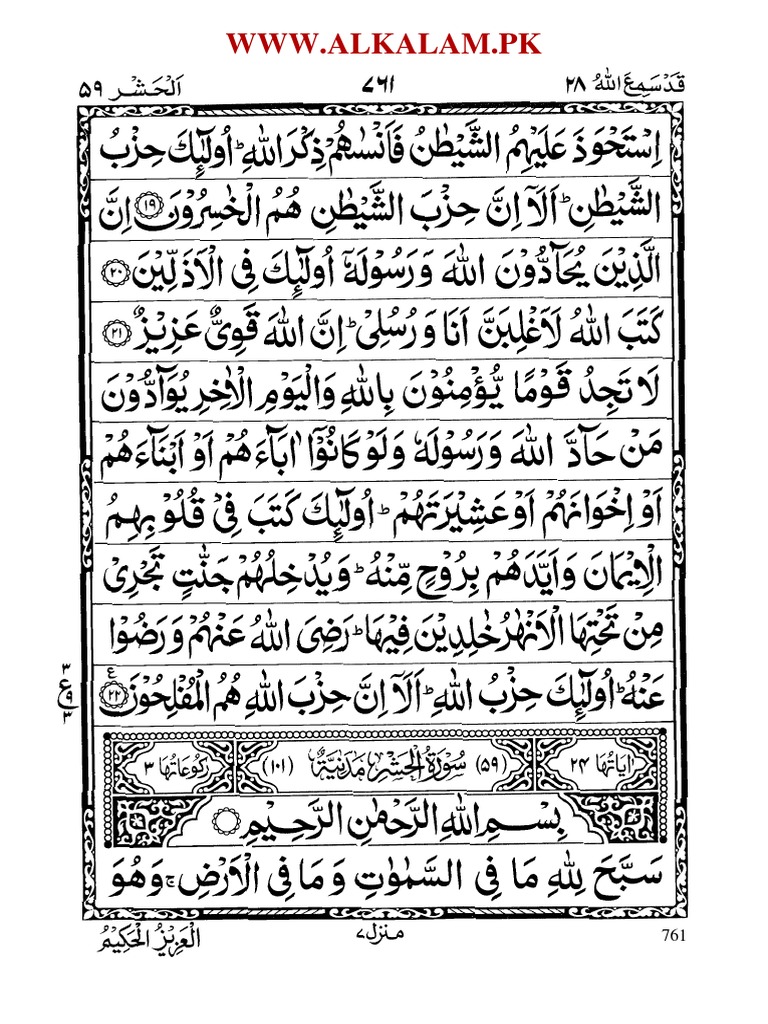 WWW.ALKALAM.PK
قَدْ سَمِعَ اللّٰهُ ۲۸ ۷۶۱ اَلْحَشْر ۵۹
اِسْتَحْوَذَ عَلَيْهِمُ الشَّيْطٰنُ فَاَنْسٰىهُمْ ذِكْرَ اللّٰهِ ؕ اُولٰٓئِكَ حِزْبُ
الشَّيْطٰنِ ؕ اَلَاۤ اِنَّ حِزْبَ الشَّيْطٰنِ هُمُ الْخٰسِرُوْنَ ۱۹ اِنَّ
الَّذِيْنَ يُحَآدُّوْنَ اللّٰهَ وَرَسُوْلَهٗۤ اُولٰٓئِكَ فِى الْاَذَلِّيْنَ ۲۰
كَتَبَ اللّٰهُ لَاَغْلِبَنَّ اَنَا وَرُسُلِىْ ؕ اِنَّ اللّٰهَ قَوِىٌّ عَزِيْزٌ ۲۱
لَا تَجِدُ قَوْمًا يُّؤْمِنُوْنَ بِاللّٰهِ وَالْيَوْمِ الْاٰخِرِ يُوَآدُّوْنَ
مَنْ حَآدَّ اللّٰهَ وَرَسُوْلَهٗ وَلَوْ كَانُوْۤا اٰبَآءَهُمْ اَوْ اَبْنَآءَهُمْ
اَوْ اِخْوَانَهُمْ اَوْ عَشِيْرَتَهُمْ ؕ اُولٰٓئِكَ كَتَبَ فِىْ قُلُوْبِهِمُ
الْاِيْمَانَ وَاَيَّدَهُمْ بِرُوْحٍ مِّنْهُ ؕ وَيُدْخِلُهُمْ جَنّٰتٍ تَجْرِىْ
مِنْ تَحْتِهَا الْاَنْهٰرُ خٰلِدِيْنَ فِيْهَا ؕ رَضِىَ اللّٰهُ عَنْهُمْ وَرَضُوْا
عَنْهُ ؕ اُولٰٓئِكَ حِزْبُ اللّٰهِ ؕ اَلَاۤ اِنَّ حِزْبَ اللّٰهِ هُمُ الْمُفْلِحُوْنَ ۲۲ ع
۳
ع ۹
۳
اٰيَاتُهَا ۲۴ (۵۹) سُوْرَةُ الْحَشْرِ مَدَنِيَّةٌ (۱۰۱) رُكُوْعَاتُهَا ۳
بِسْمِ اللّٰهِ الرَّحْمٰنِ الرَّحِيْمِ
سَبَّحَ لِلّٰهِ مَا فِى السَّمٰوٰتِ وَمَا فِى الْاَرْضِ ۚ وَهُوَ
الْعَزِيْزُ الْحَكِيْمُ
منزل ۷
761